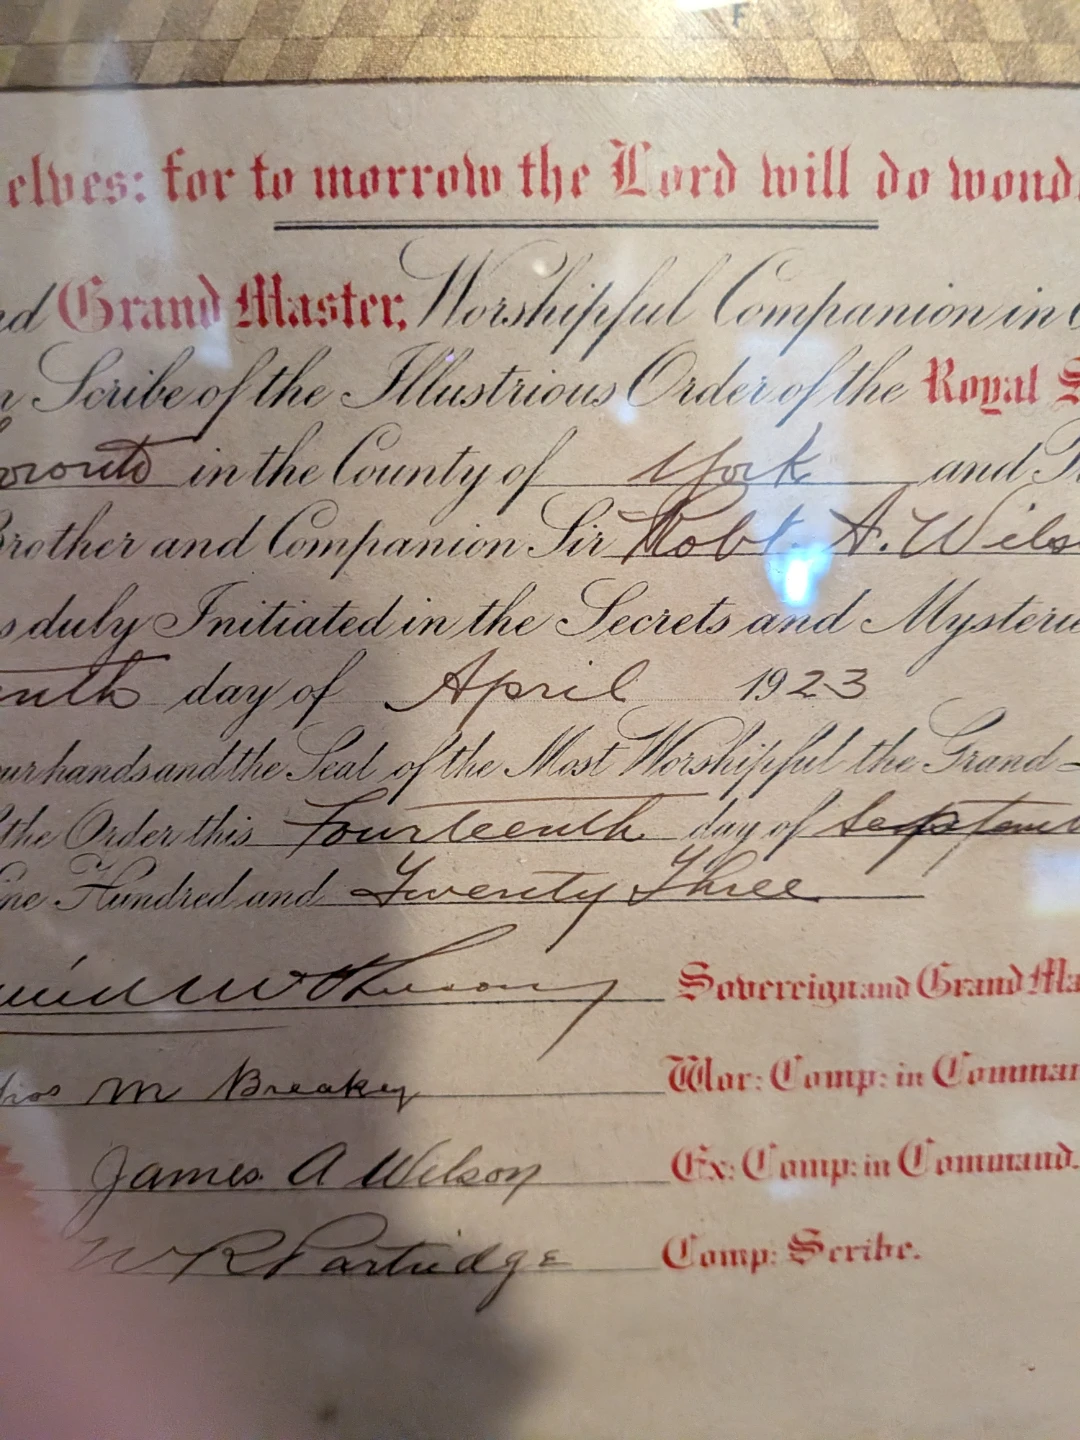 F
elves: for to morrow the Lord will do wond
nd Grand Master, Worshipful Companion in
n Scribe of the Illustrious Order of the Royal S
oronto in the County of York and
Brother and Companion Sir Robt. A. Wils
s duly Initiated in the Secrets and Mysterie
enth day of April 1923
our hands and the Seal of the Most Worshipful the Grand
the Order this Fourteenth day of Septem
ine Hundred and Twenty Three
Sovereign and Grand Ma
M Breakey War: Comp: in Comman
James. A Wilson Ex: Comp: in Command.
W R Partridge Comp: Scribe.